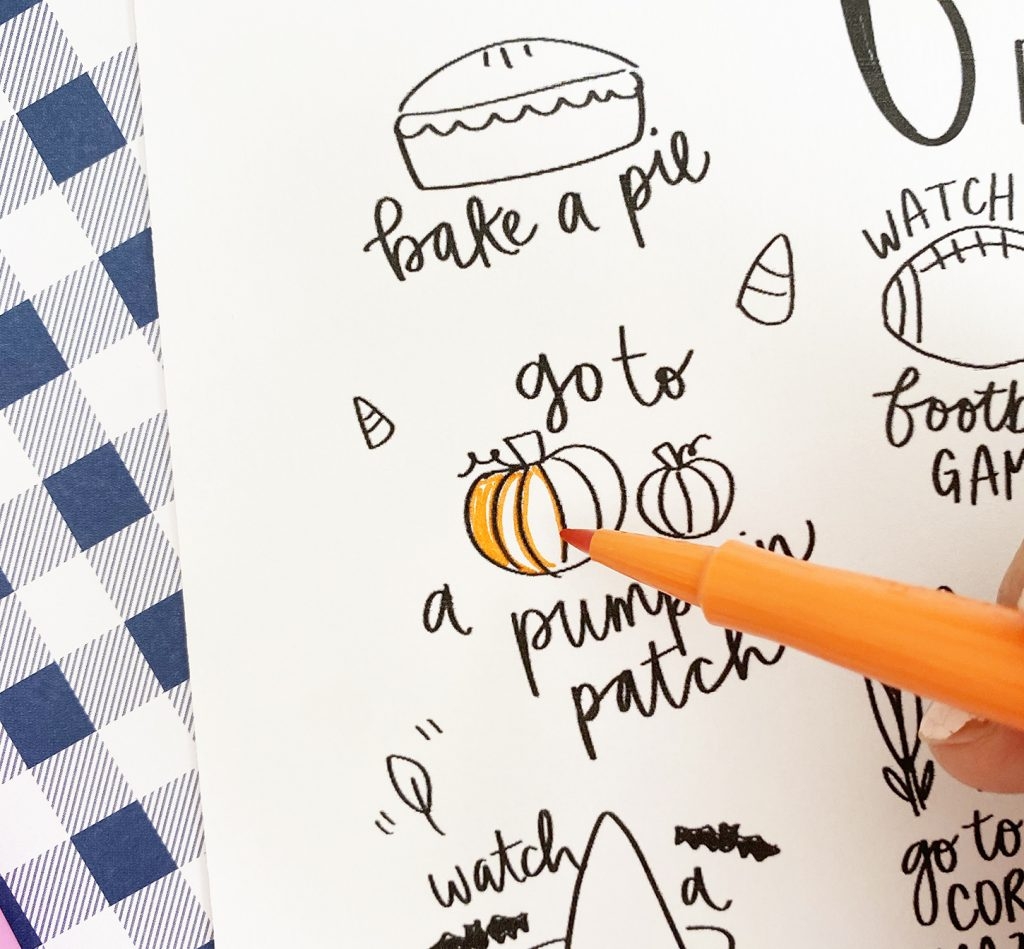 bake a pie
WATCH
go to
a
patch
GAM
watch
a
go to
COR